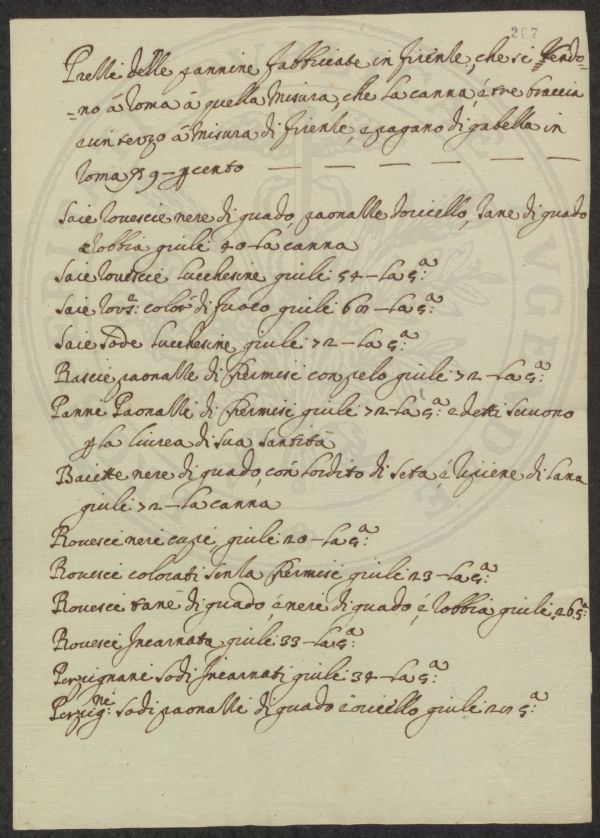 207
Prezzi delle pannine fabbricate in firenze, che si vendo=
=no à Roma à quella misura, che la canna, è tre braccia
e un terzo à misura di firenze, e pagano di gabella in
Roma p 9 – p cento
Saie rovescie nere di guado, paonazze d'oricello, tane di guado
e robbia giuli 40 – la canna
Saie rovescie Lucchesine giuli 54 – la cª:
Saie rovs: color di fuoco giuli 60 – la cª:
Saie sode Lucchesine giuli 72 – la cª:
Rascie paonazze di chermisi con pelo giuli 72 – la cª:
Panni Paonazzi di chermisi giuli 72 – la cª e detti servono
p la livrea di sua santità
Baiette nere di guado, con l'ordito di seta, è ripiene di lana
giuli 72 – la canna
Rovesci neri cupi giuli 20 – la cª:
Rovesci colorati senza chermisi giuli 23 – la cª:
Rovesci tanè di guado, è nere di guado, è robbia giuli 26 cª:
Rovesci Incarnata giuli 33 – la cª:
Perpignani sodi Incarnati giuli 34 – la cª:
Perpigni: sodi paonazzi di guado è oricello giuli 20 cª: